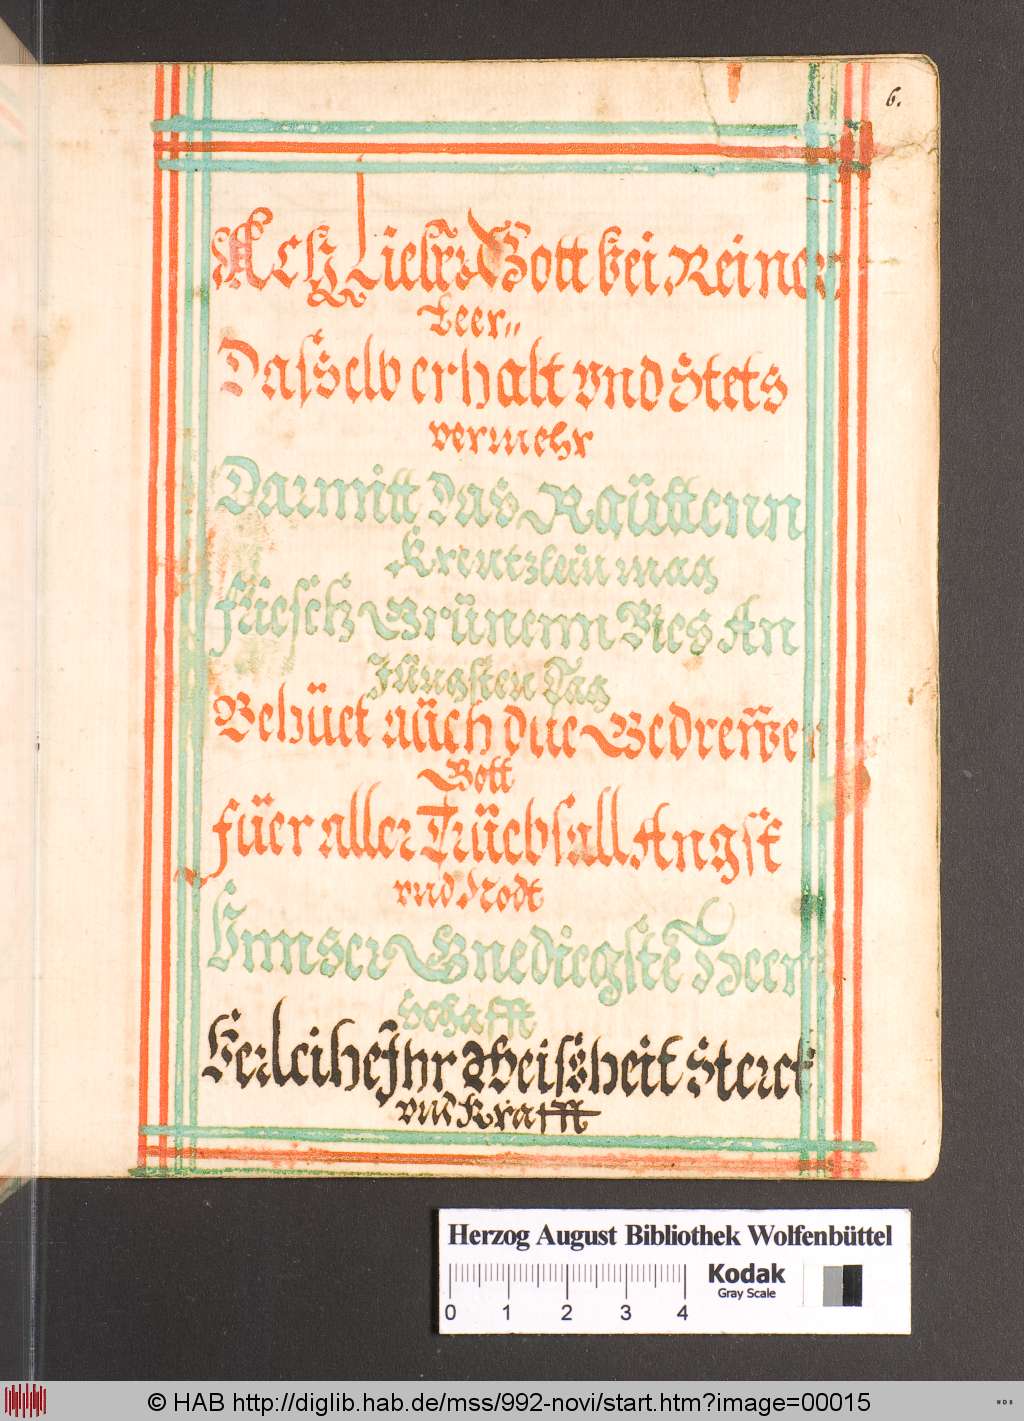 6.
Ach Lieber Gott bei Reiner
Leer„
Dasselb erhalt vnd Stets
vermehr
Darmitt das Raüttenn
Krentzlein mag
friesch Grünenn Bies An
Jüngsten Tag
Behüet aüch die Bedrewer
Gott
füer aller Trüebsall Angst
vnd Nodt
Vnnser Gnediegste Heer
Schafft
Verleihe Ihr Weissheit Sterck
vnd Krafft
Herzog August Bibliothek Wolfenbüttel
0 1 2 3 4
Kodak
Gray Scale
© HAB http://diglib.hab.de/mss/992-novi/start.htm?image=00015